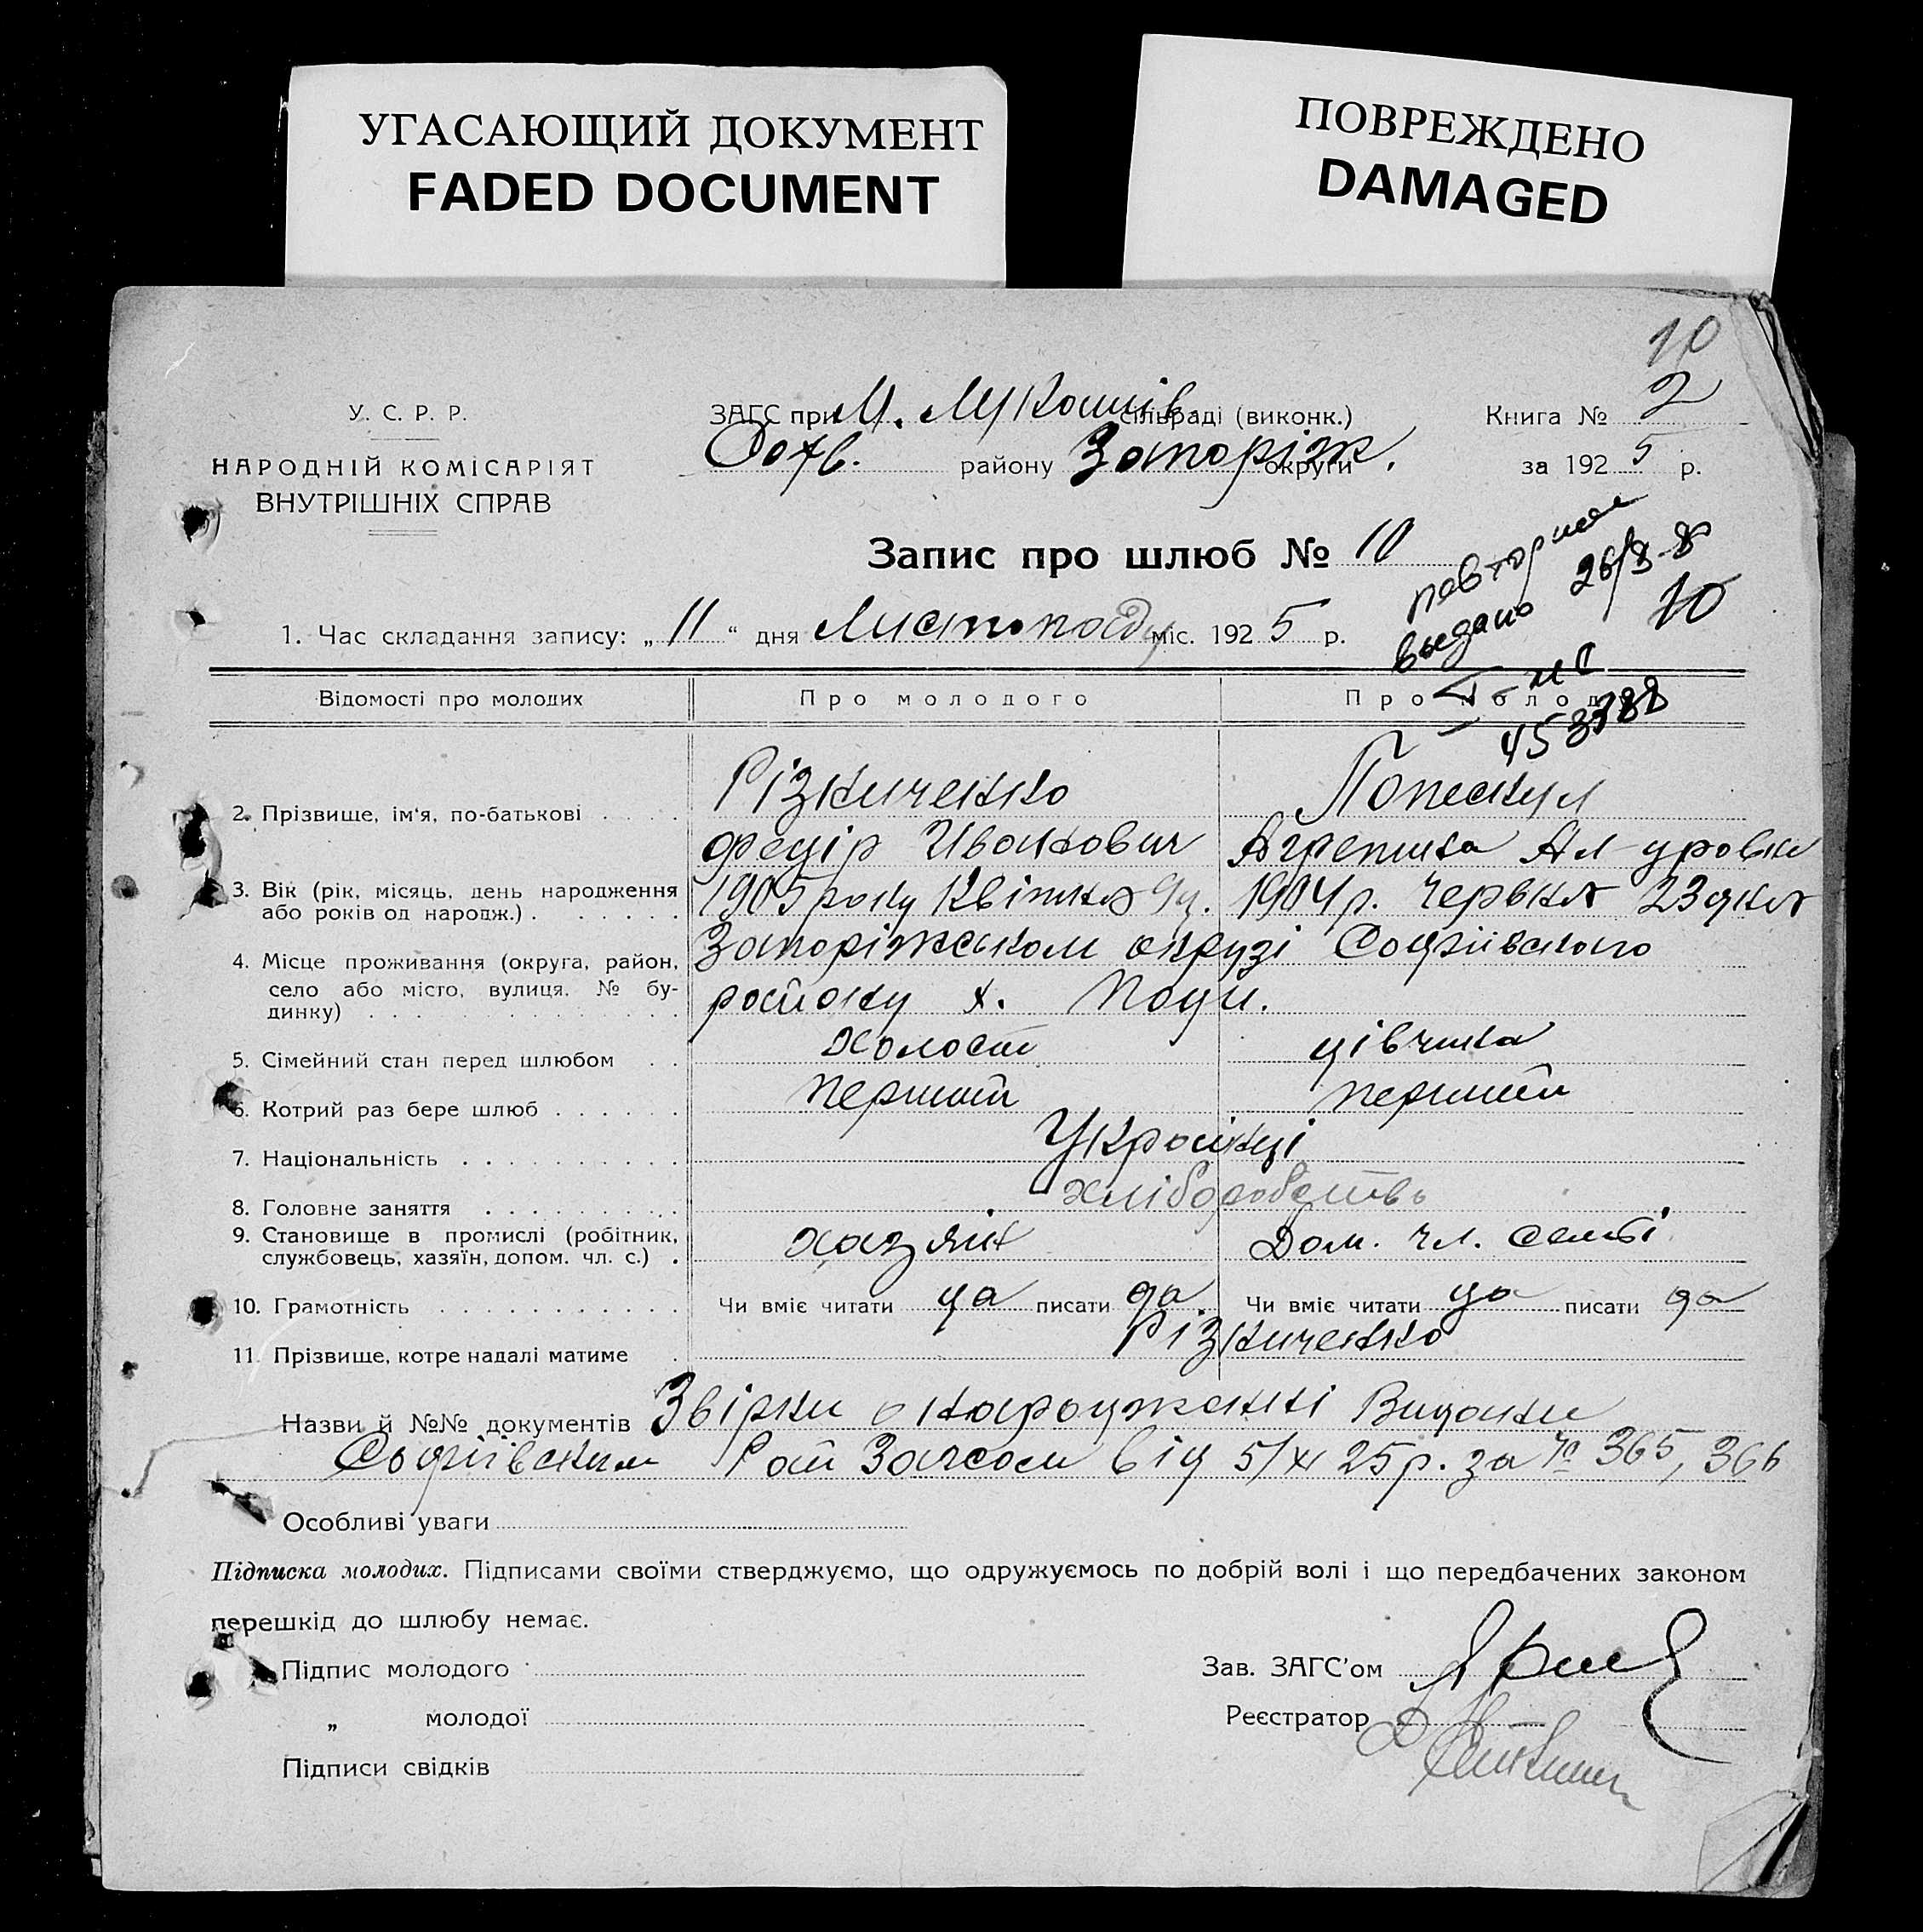 УГАСАЮЩИЙ ДОКУМЕНТ
FADED DOCUMENT
ПОВРЕЖДЕНО
DAMAGED
10
У. С. Р. Р.
НАРОДНІЙ КОМІСАРІЯТ
ВНУТРІШНІХ СПРАВ
ЗАГС при сільраді (виконк.)
району Запоріж. округи
Книга № 2
за 1925 р.
Запис про шлюб № 10
повторное
выдано 26/3-8
10
453388
1. Час складання запису: „11“ дня Листопаду міс. 1925 р.
Відомості про молодих
Про молодого
Про молоду
2. Прізвище, ім'я, по-батькові
Різниченко
Федір Иванович
Агрепина
3. Вік (рік, місяць, день народження
або років од народж.)
1905 року Квітня 9 д.
1904 р. Червня 23 дня
4. Місце проживання (округа, район,
село або місто, вулиця, № бу-
динку)
Запоріжськом окрузі Софиівского
району х.
5. Сімейний стан перед шлюбом
холост
дівчина
6. Котрий раз бере шлюб
перший
перший
7. Національність
Українці
8. Головне заняття
хліборобство
9. Становище в промислі (робітник,
службовець, хазяїн, допом. чл. с.)
хазяїн
Дом. чл. семьі
10. Грамотність
Чи вміє читати да писати да
Чи вміє читати да писати да
11. Прізвище, котре надалі матиме
Різниченко
Назви й №№ документів Звірки о народженні Видани
Софиівским Рай Загсом від 5/XI 25 р. за № 365, 366
Особливі уваги
Підписка молодих. Підписами своїми стверджуємо, що одружуємось по добрій волі і що передбачених законом
перешкід до шлюбу немає.
Підпис молодого
„ молодої
Підписи свідків
Зав. ЗАГС'ом
Реєстратор